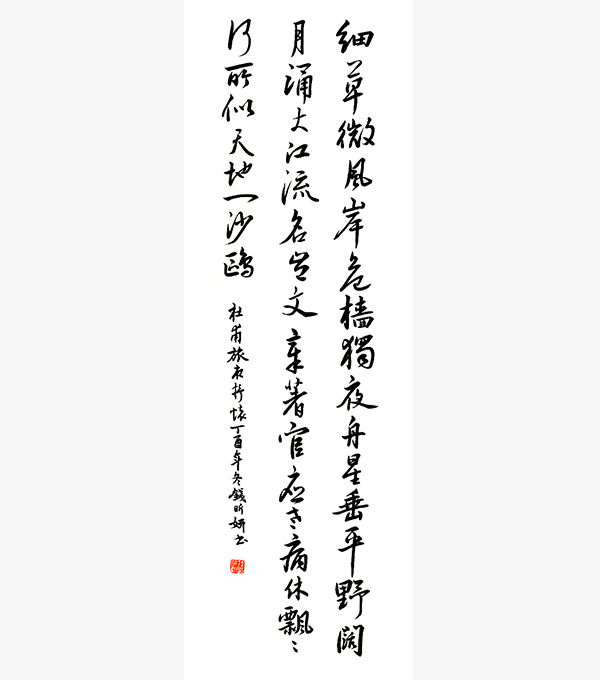 细草微风岸危樯獨夜舟星垂平野闊
月涌大江流名岂文章著官应老病休飄〻
何所似天地一沙鷗
杜甫旅夜抒懷丁酉年冬錢昕妍书